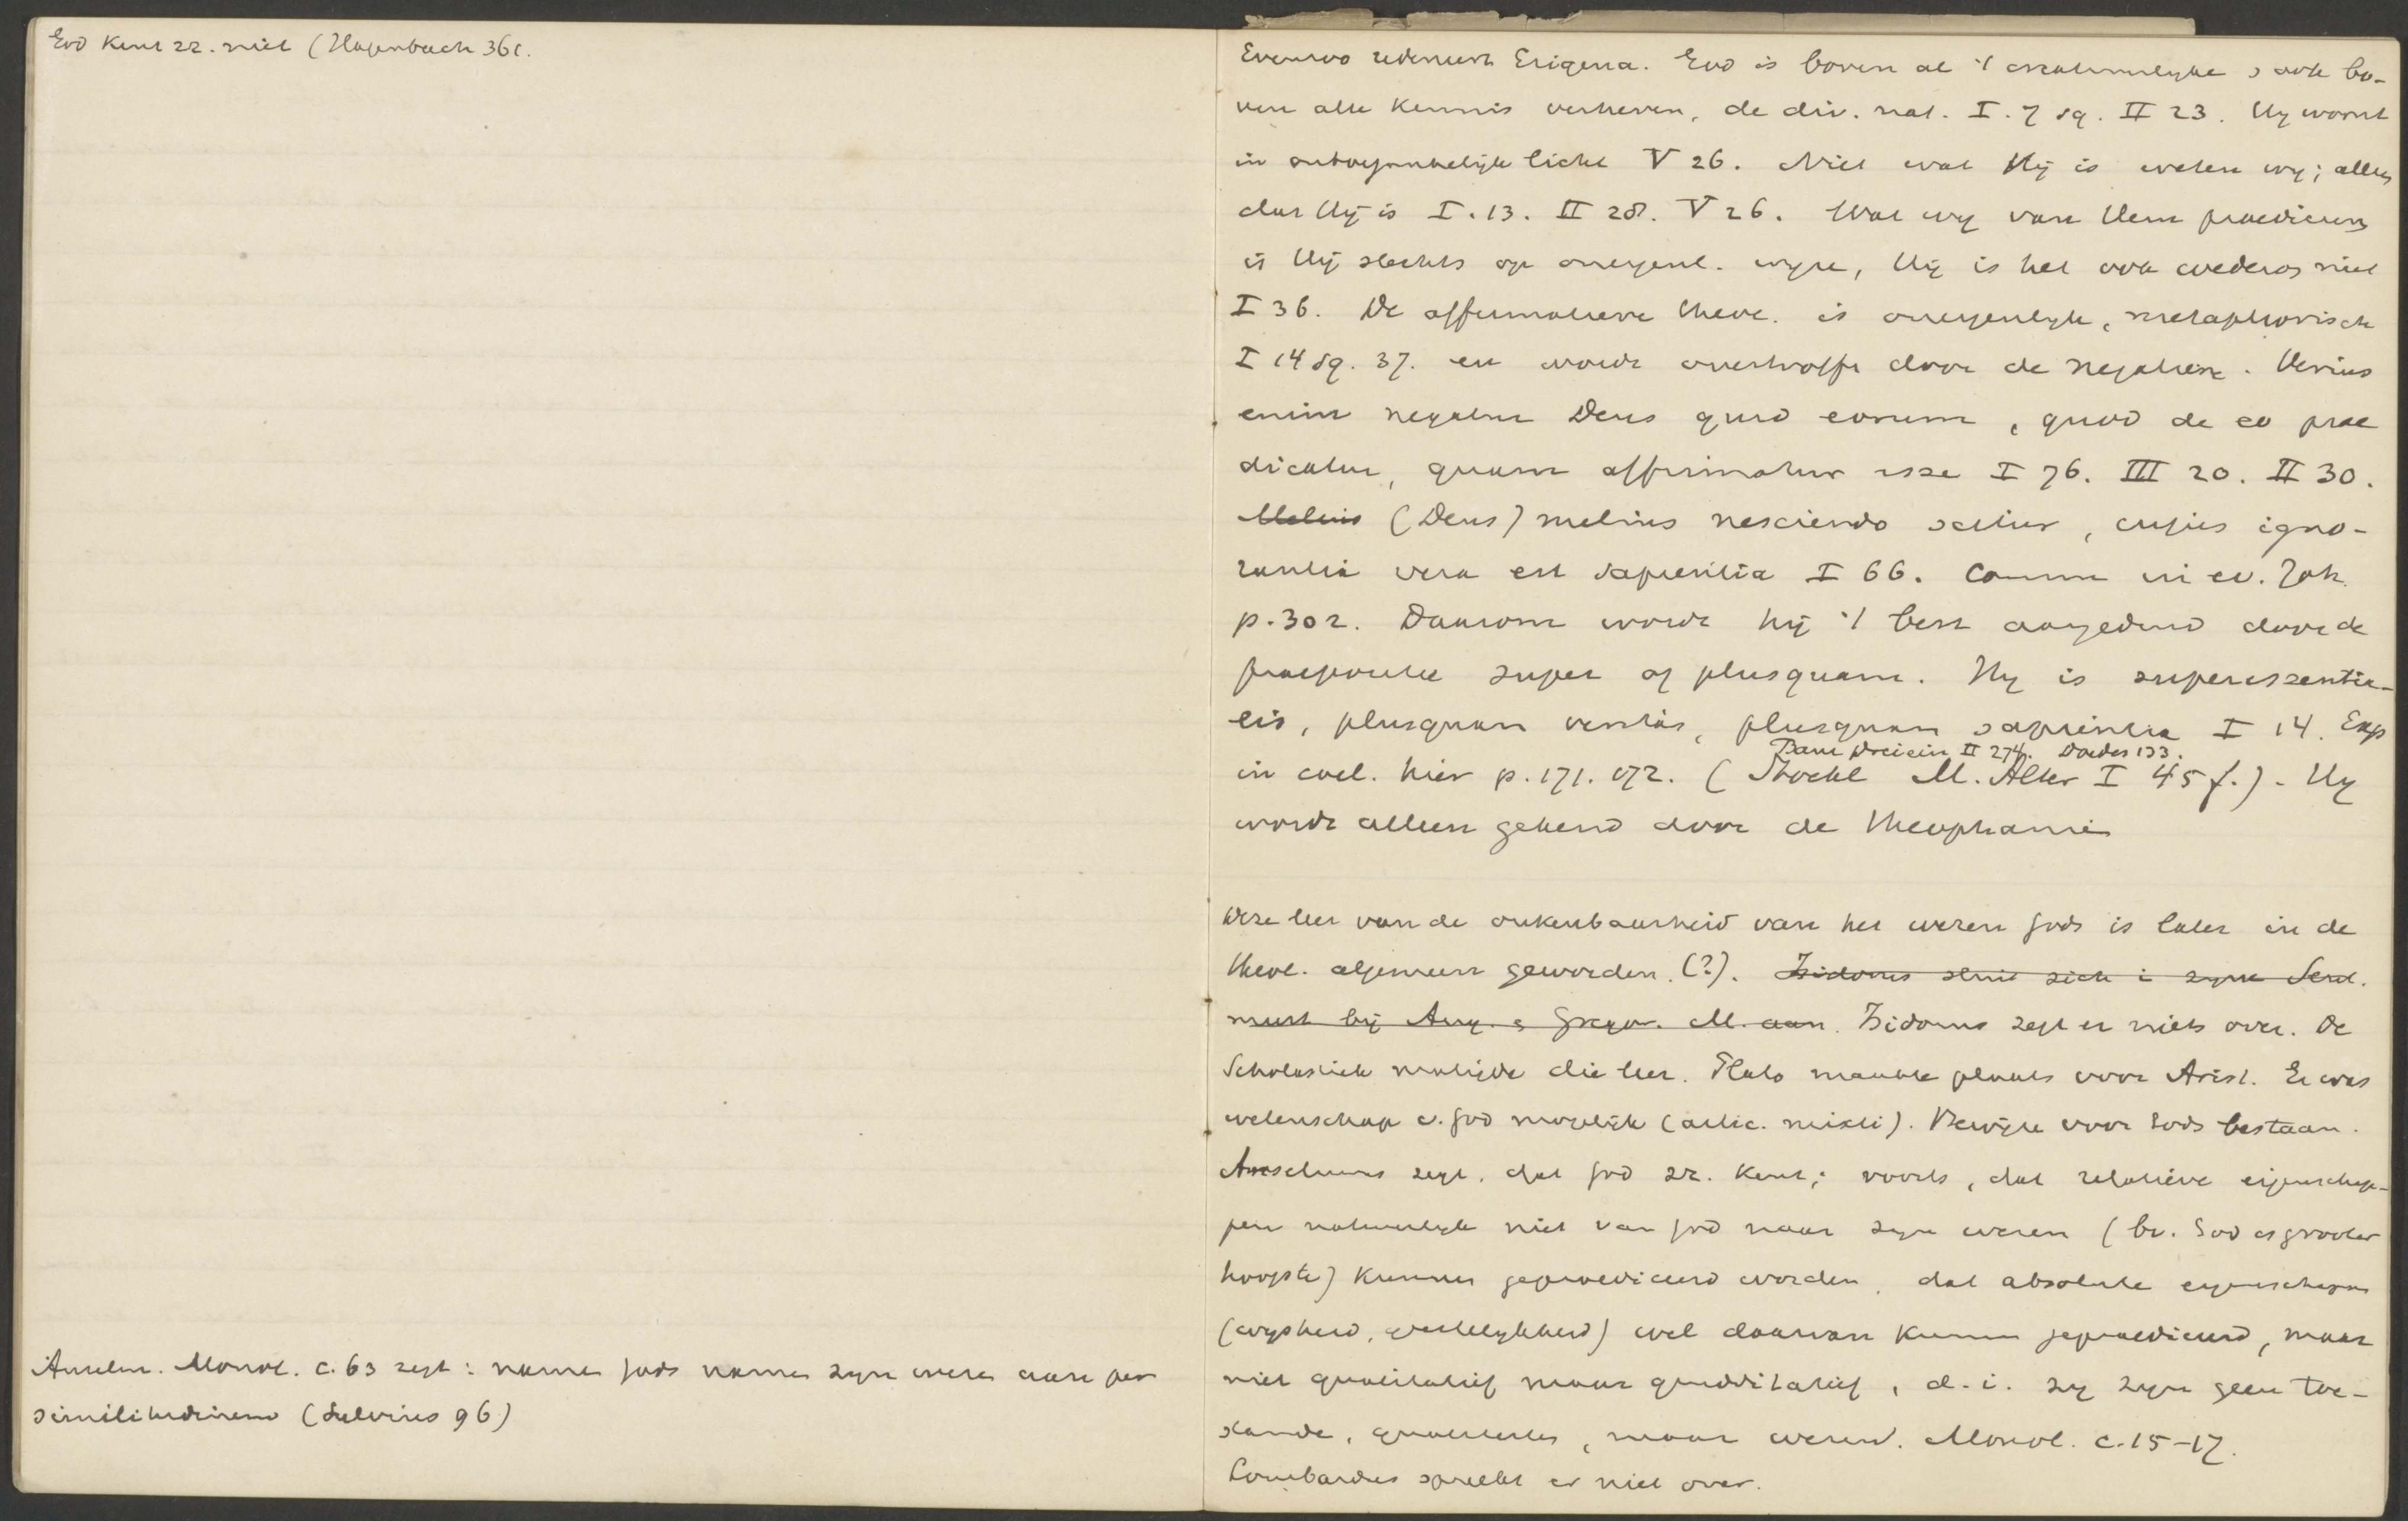 God kent zz. niet (Hagenbach 361.
Anselm. Monol. c. 63 zegt: namen Gods namen zyn wezen aan per
similitudinem (Sylvius 96)
Evenzoo redeneert Erigena. God is boven al 't creatuurlyke & ook bo-
ven alle kennis verheven, de div. nat. I. 7 sq. II 23. Hy woont
in ontoegankelijk licht V 26. Niet wat Hij is weten wy; alleen
dat Hij is I. 13. II 28. V 26. Wat wy van Hem praediceeren
is Hij slechts op oneigenl. wyze, Hij is het ook wederom niet
I 36. De affirmatieve theol. is oneigenlyk, metaphorisch
I 14 sq. 37. en wordt overtroffen door de negatieve. Verius
enim negatur Deus quid eorum, quod de eo prae
dicatur, quam affirmatur esse I 76. III 20. II 30.
Melius (Deus) melius nesciendo scitur, cujus igno-
rantia vera est sapientia I 66. Comm in ev. Joh.
p. 302. Daarom wordt hij 't best aangeduid door de
praepositie super of plusquam. Hy is superessentia-
lis, plusquam veritas, plusquam sapientia I 14. Exp
Baur Dreiein II 274. Doedes 133.
in coel. hier p. 171. 172. (Stöckl M. Alter I 45 f.). Hy
wordt alleen gekend door de theophanie
Deze leer van de onkenbaarheid van het wezen Gods is later in de
theol. algemeen geworden (?). Isidorus sluit zich i zyne Sent.
meest bij Aug. & Gregor. M. aan. Isidorus zegt er niets over. De
Scholastiek matigde die leer. Plato maakte plaats voor Arist. Er was
wetenschap v. God mogelijk (artic. mixti). Bewijze voor Gods bestaan.
Anselmus zegt, dat God zz. kent; voorts, dat relatieve eigenschap-
pen natuurlyk niet van God naar zyn wezen (bv. God is grooter
hoogste) kunnen gepraediceerd worden, dat absolute eigenschappen
(wysheid, geestelykheid) wel daarvan kunnen gepraediceerd, maar
niet qualitatief maar quidditatief, d. i. zy zyn geen toe-
stande, qualiteiten, maar wezend. Monol. c. 15-17.
Lombardus spreekt er niet over.